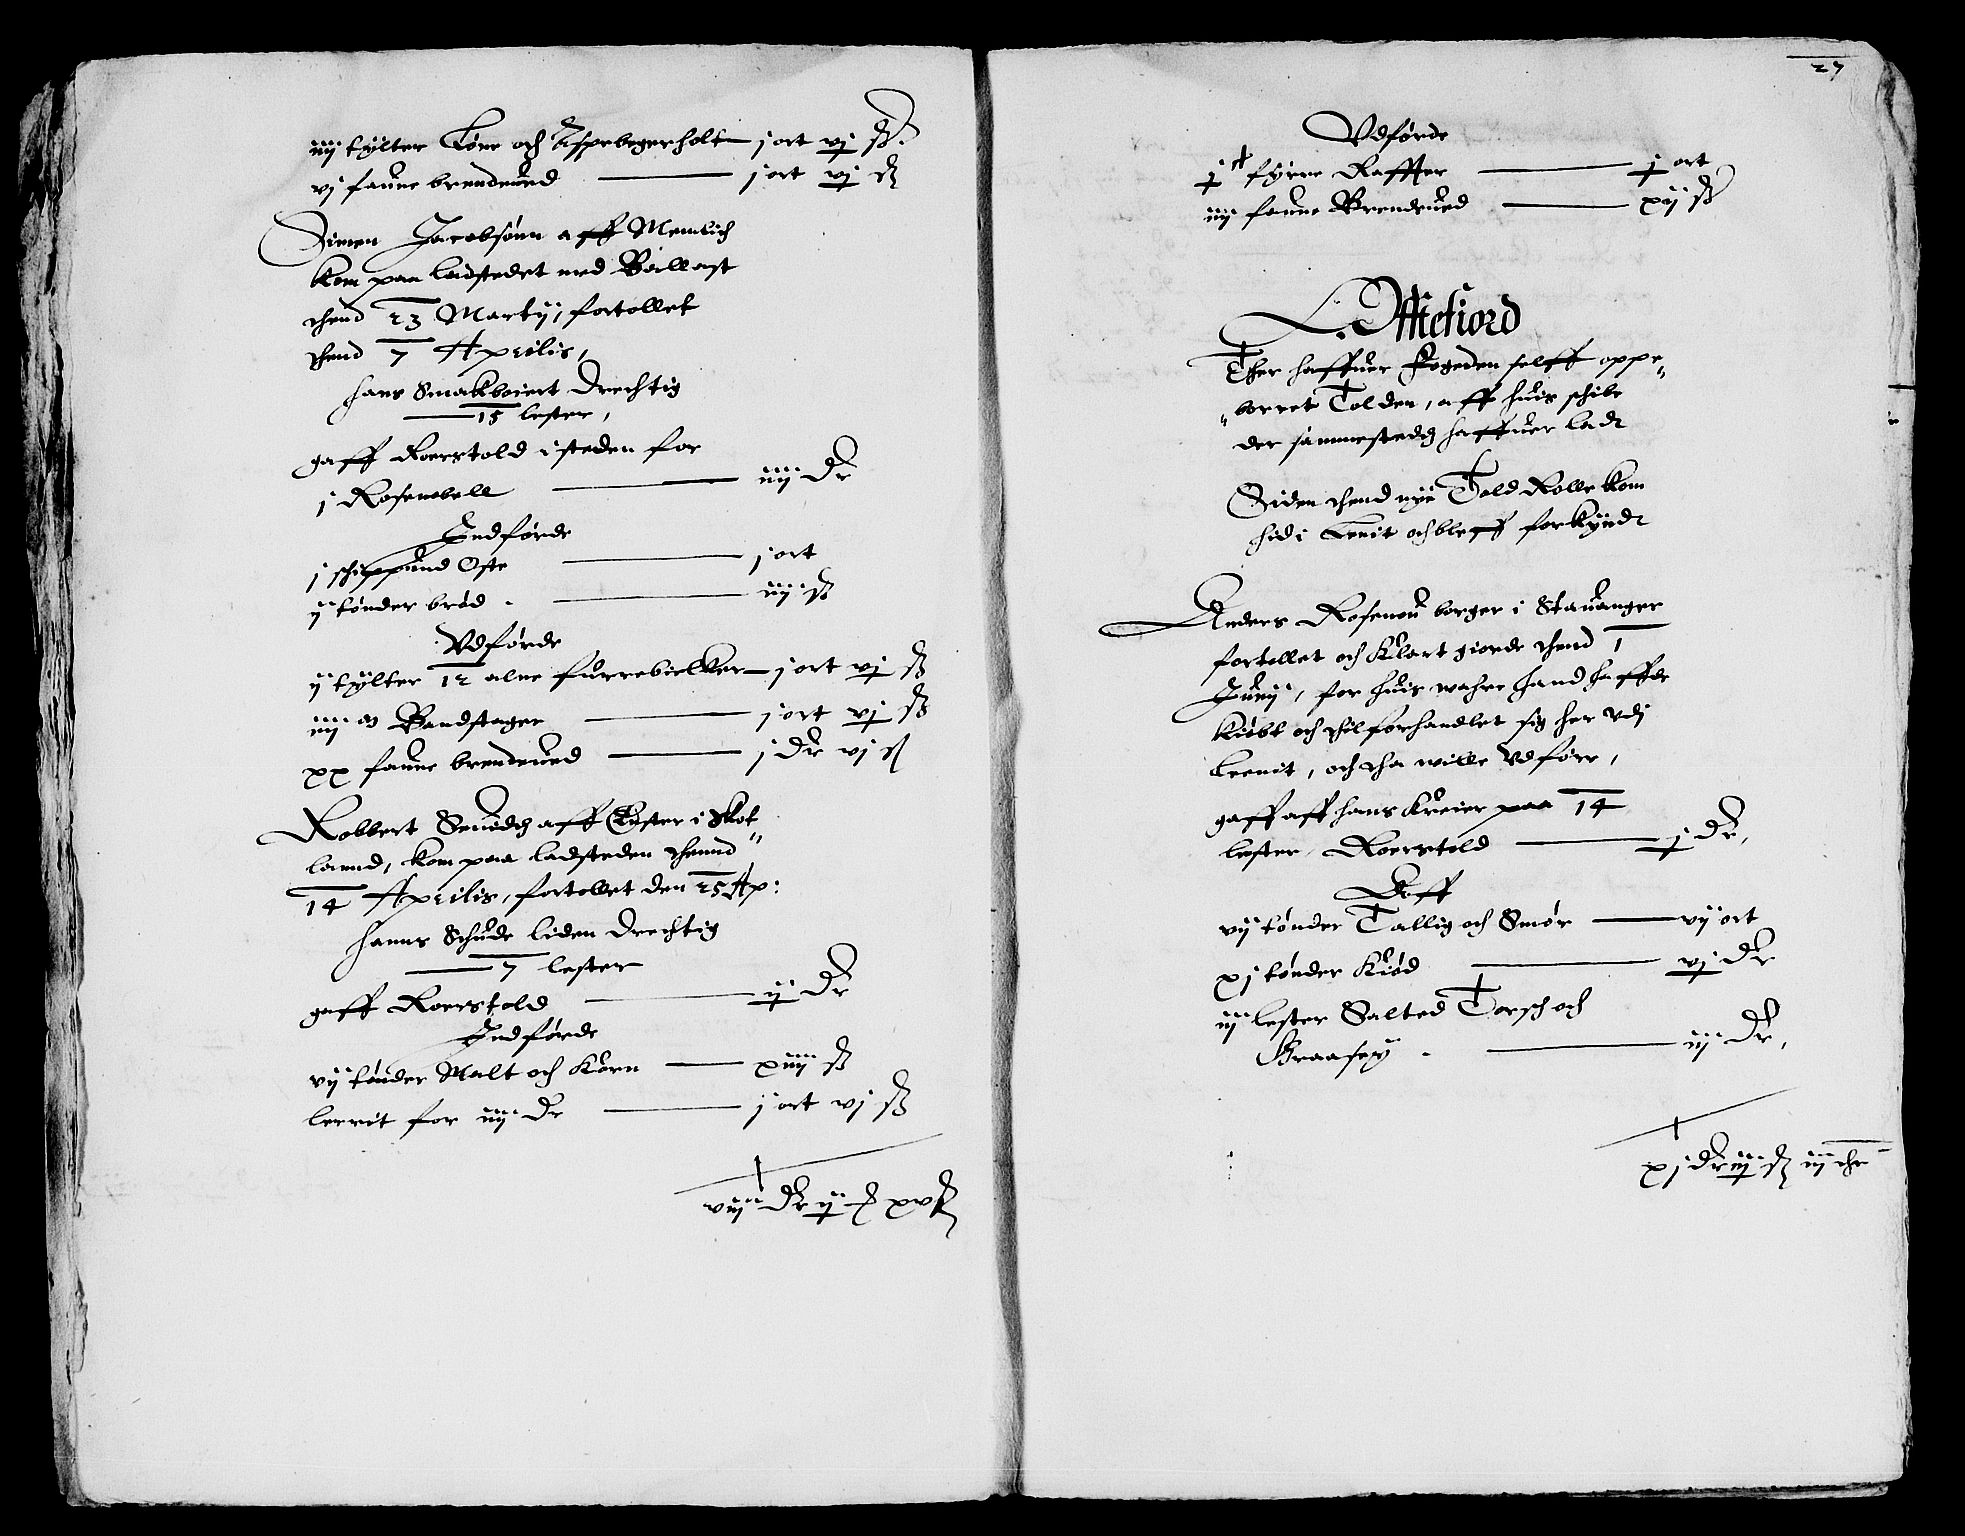 iiij tylter Løne och Aspebegerholt j ort vj ß.
vj faune brendeued j ort vj ß
Simen Jacobsønn aff Memlich
kom paa ladstedet med Ballast
thend 23 Martij, fortollet
thend 7 Aprilis,
hans Smakboiert drechtig
15 lester,
gaff Roerstold i steden for
j Rosenobell iiij dr
Indførde
j schippund Oste j ort
ij tønder brød iiij ß
Vdførde
ij tylter 12 alne furrebielker j ort vj ß
iiij Bandstager j ort vj ß
xx faune brendeued j dr vj ß
Robbert Smidh aff Ester i Skot"
laand, kom paa ladsteden thennd
14 Aprilis, fortollet den 25 Ap:
hanns Schude liden drechtig
7 lester
gaff Roerstold ij dr
Indførde
vij tønder Malt och Korn xiiij ß
lerrit for iiij dr j ort vj ß
viij dr ij ß xv ß
27
Vdførde
j fyrre Raffter j ort
iiij faune Brendeued xij ß
Offiefiord
Ther haffuer Fogeden selff oppe"
"borret Tolden, aff huis schibe
der sammestedh haffuer ladt
Siden thend nye Told Rolle kom
hid i Lenit och bleff forkyndt
Anders Rosenou borger i Stauanger
fortollet och Klart giorde thend 1
Junij, for huis wahre hand haffde
kiøbt och thilforhandlet sig her vdj
Leenit, och tha wille vdføre,
gaff aff hans Kreier paa 14
lester, Roerstold j dr,
Aff
vij tønder Tallig och Smør vij ort
xj tønder Kiød vj dr
iij lester Salted Torsch och
Graasey iij dr,
xj dr iij ß iij